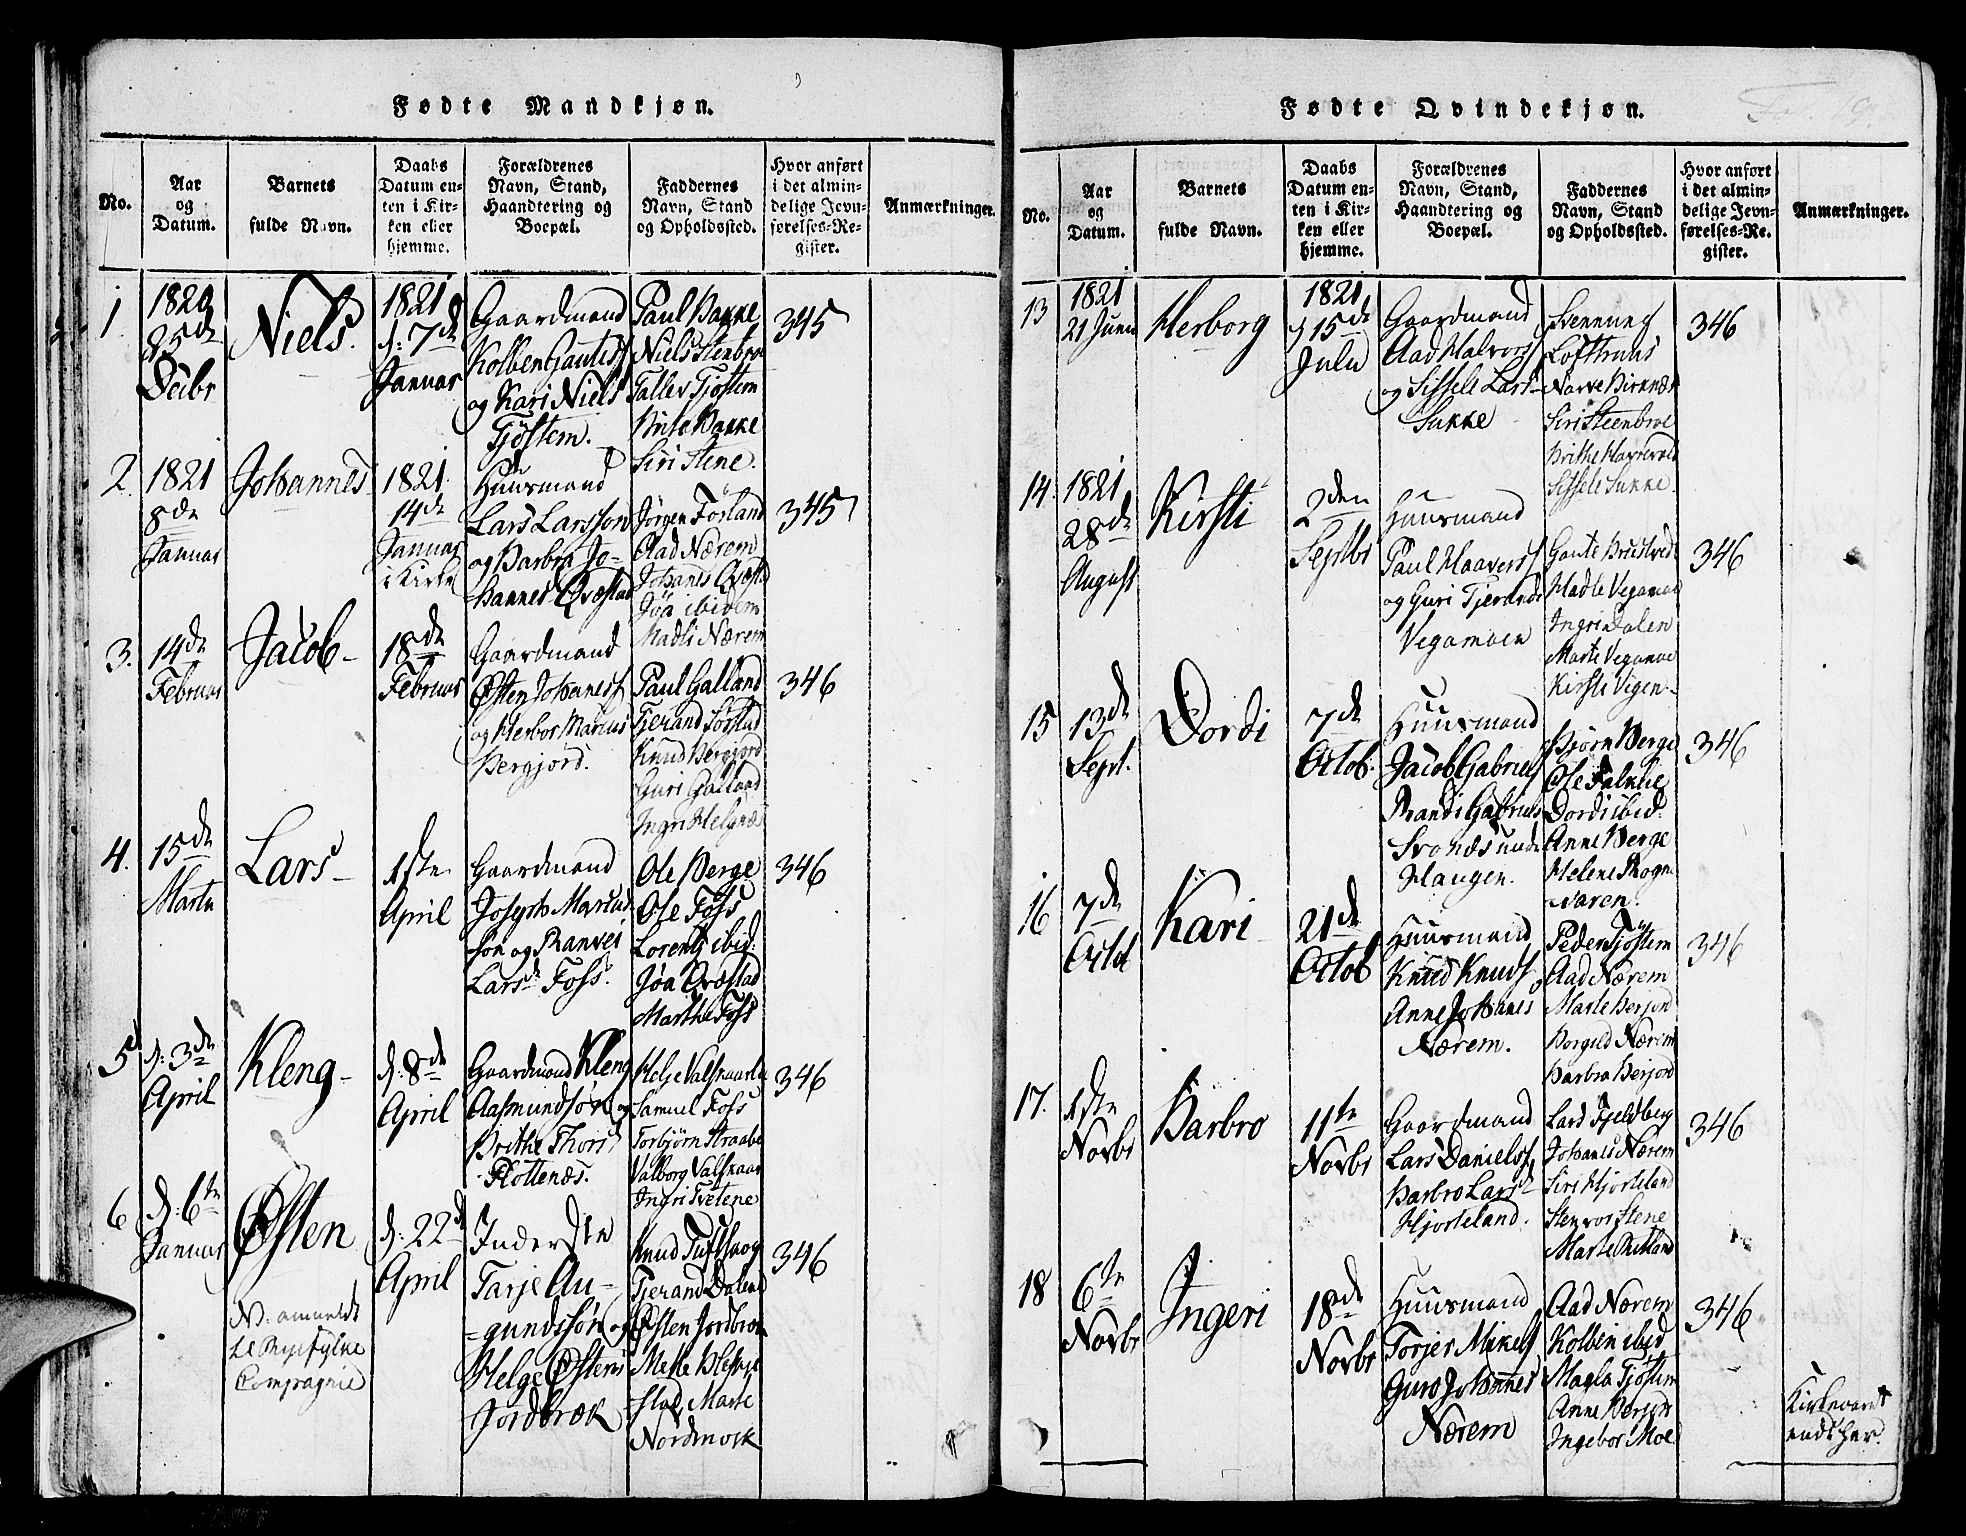 Fødte Mandkjøn.
No.
Aar
og
Datum.
Barnets
fulde Navn.
Daabs
Datum en-
ten i Kir-
ken eller
hjemme.
Forældrenes
Navn, Stand,
Haandtering og
Boepæl.
Faddernes
Navn, Stand
og Opholdssted.
Hvor anført
i det almin-
delige Jevn-
førelses-Re-
gister.
Anmærkninger.
1
1820
25de
Decbr
Niels.
1821
d: 7de
Januar
Gaardmand
Kolben Gautess
og Kari Niels
Tjöstem.
Paul Bakke
Niels Stenbroe
Tallev Tjöstem
Brite Bakke
Siri Stene.
345
2.
1821
8de
Januar
Johannes
1821
14de
Januar
i Kirke
Huusmand
Lars Larsson
og Barbra Jo-
hannes Qvæstad
Jörgen Förland
Aad Nærem
Johanes Qvæstad
Jöa ibidem
Madli Nærem
345
3.
14de
Februar
Jacob
18de
Februar
Gaardmand
Østen Johaness
og Herbor Marius
Bergjord.
Paul Galland
Tjerand Sörstad
Knud Bergjord
Guri Galland
Ingri Helgnæs
346
4.
15de
Martii
Lars
1ste
April
Gaardmand
Joseph Marcus
son og Ranvei
Larsd. Foss.
Ole Berge
Ole Foss
Lorents ibid:
Jöa Qvæstad
Marthe Foss
346
5
d: 3de
April
Kleng
d: 8de
April
Gaardmand Kleng
Aasmundsön og
Brithe Thoris
Flottenæs.
Helje Valskaar
Samuel Foss
Torbjörn Straabø
Valborg Valskaar
Ingri Tvetene
346
6
d: 6te
Januar
Østen
NB. anmeldt
til Ryefylke
Compagnie
d: 22d
April
Inderste
Tarje Au-
gundssön og
Helge Østens
Jordbræk
Knud Tuftskog
Tjerand Dalen
Østen Jordbræk
Mette Bleskje-
stad, Marte
Nordmork
346
Fødte Qvindekjøn.
No.
Aar
og
Datum.
Barnets
fulde Navn.
Daabs
Datum en-
ten i Kir-
ken eller
hjemme.
Forældrenes
Navn, Stand,
Haandtering og
Boepæl.
Faddernes
Navn, Stand
og Opholdssted.
Hvor anført
i det almin-
delige Jevn-
førelses-Re-
gister.
Anmærkninger.
13
1821
21 Juni
Herborg
1821
d 15de
Julii
Gaardmand
Aad Halvors
og Sissele Lars
Sukke
Svennung
Lofthuus
Narve Birknæs
Siri Steenbroe
Brithe
Sissele Sukke.
346
14.
1821
28de
August
Kirsti
2den
Septbr
Huusmand
Paul Haaverss
og Guri Tjerands
Vegamoen
Gaute Brustved
Madle Vegamoe
Ingri Dalen
Marte Vegamoe
Kirsti Vigen
346
15
13de
Sept.
Dordi
7de
Octob.
Huusmand
Jacob Gabriels
Randi Gabriels
Haugen.
Björn Berge
Ole Falkeie
Dordi ibid:
Anne Berge
Helene Rogn-
varen.
346
16
7de
Octob
Kari
21de
Octob
Huusmand
Knud Knuds
Anne Johanes
Nærem.
Peder Tjöstem
Aad Nærem
Marte Berjord
Borgild Nærem
Barbra Berjord
346
17.
1ste
Novbr
Barbro
11te
Novbr
Gaardmand
Lars Danielss
Barbro Lars
Hjorteland.
Lars Fjeldberg
Johanes Nærem
Siri Hjorteland
Stenvor Stene
Marte Birkland
346
18
6te
Novbr
Ingeri
18de
Novbr
Huusmand
Torjer Mikels
Guro Johannes
Nærem
Aad Nærem
Kolben ibid
Magla Tjöstem
Anne Berjord
Ingebor Moe
346
Kirkeaaret
endes her.